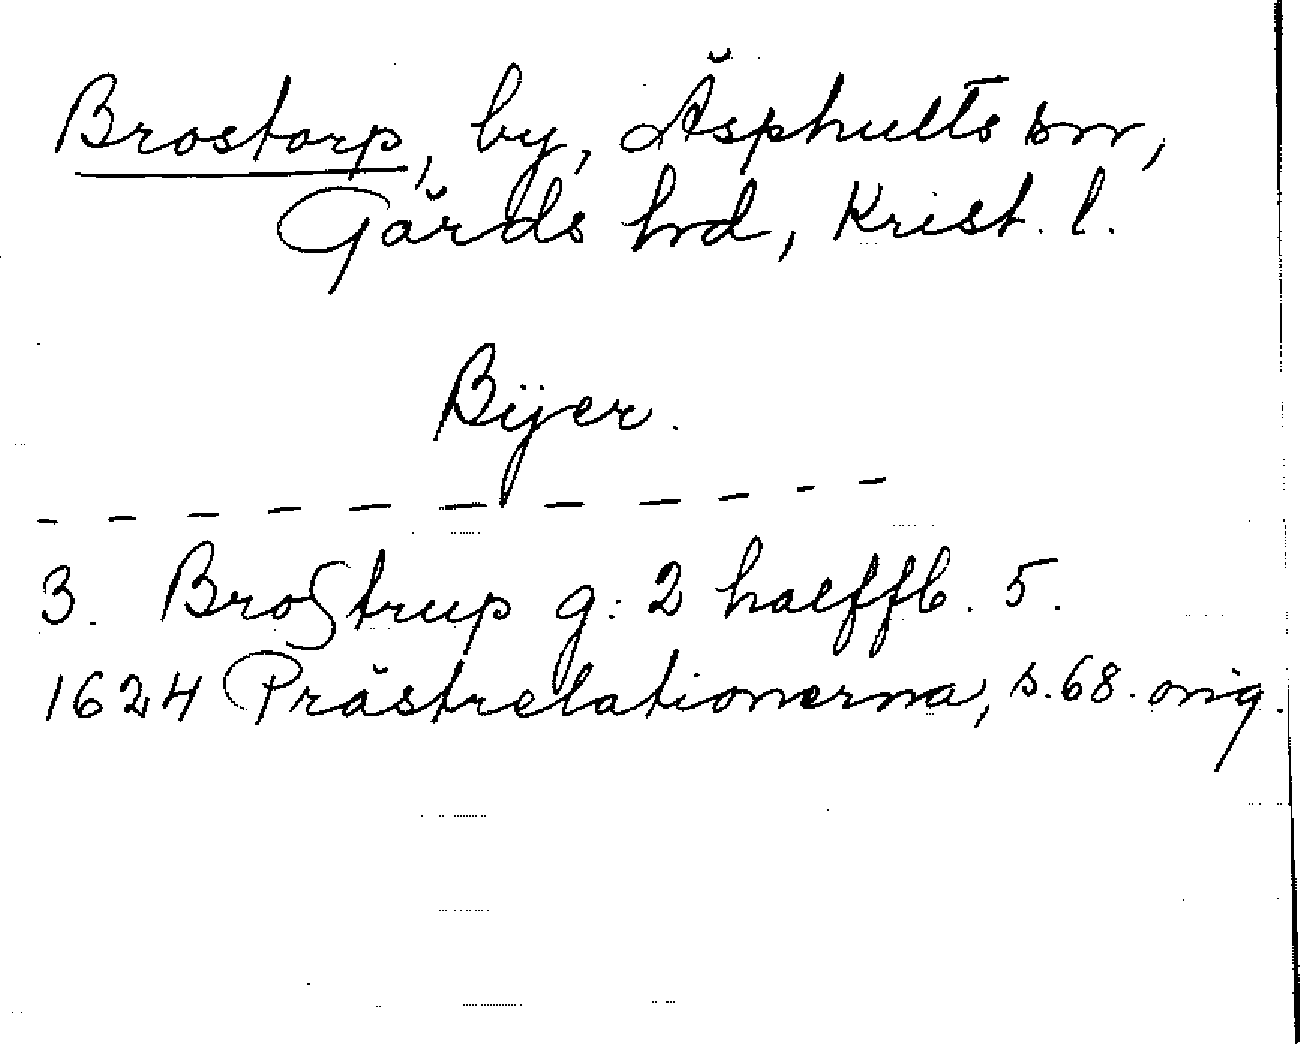 Brostorp, by, Äsphults snr,
Gärds hrd, Krist. l.
Bÿer.
3. Broßtrup g: 2 halffb. 5.
1624 Prästrelationerna, s. 68. orig.